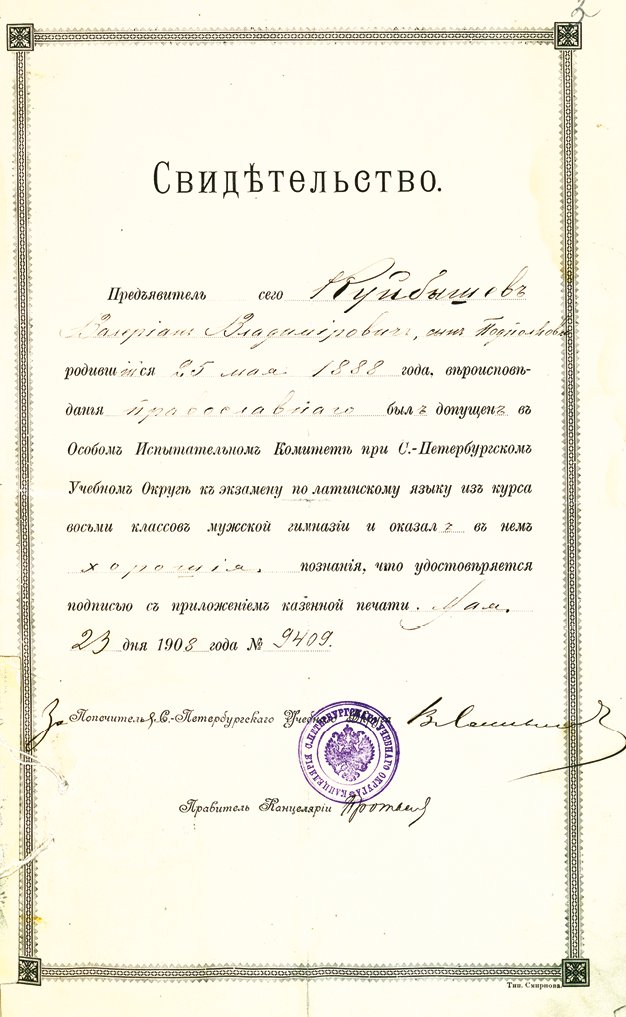 2
Свидѣтельство.
Предъявитель сего Куйбышовъ
Валеріанъ Владиміровичъ, сынъ
родившійся 25 мая 1888 года, вѣроисповѣ-
данія православнаго былъ допущенъ въ
Особомъ Испытательномъ Комитетѣ при С.-Петербургскомъ
Учебномъ Округѣ къ экзамену по латинскому языку изъ курса
восьми классовъ мужской гимназіи и оказалъ въ немъ
хорошія познанія, что удостовѣряется
подписью съ приложеніемъ казенной печати. Мая
23 дня 1908 года № 9409.
За Попечителя С.-Петербургскаго Учебнаго Округа
КАНЦЕЛЯРІЯ С.ПЕТЕРБУРГСКАГО УЧЕБНАГО ОКРУГА
Правитель Канцеляріи
Тип. Смирнова.